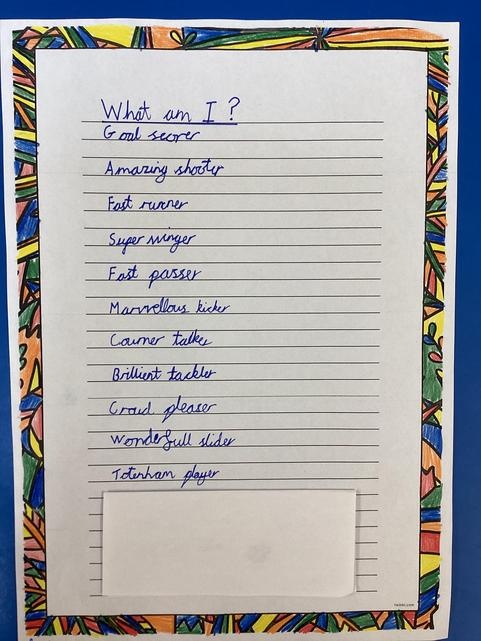 What am I ?
Goal scorer
Amazing shooter
Fast runner
Super winger
Fast passer
Marvvellous kicker
Courner talker
Brillient tackler
Croud pleaser
wonderfull slider
Totenham player
twinkl.com